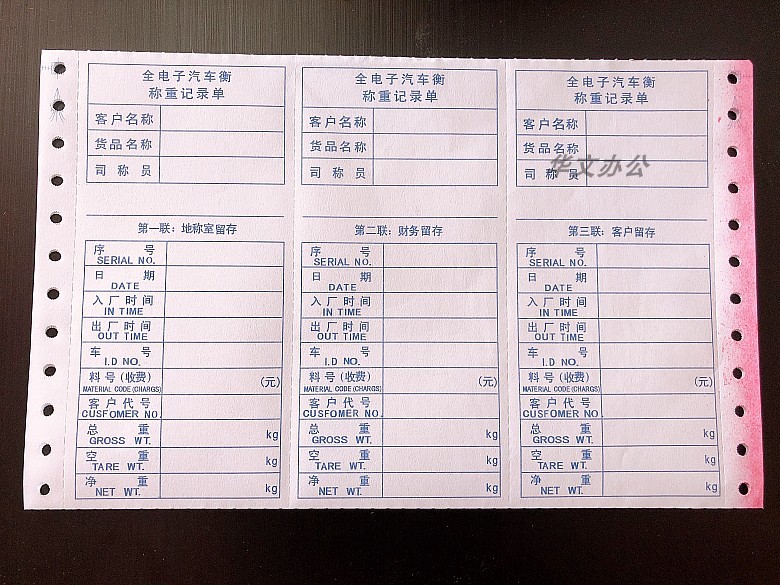 全电子汽车衡
称重记录单
客户名称
货品名称
司称员
第一联：地称室留存
序 号
SERIAL NO.
日 期
DATE
入厂时间
IN TIME
出厂时间
OUT TIME
车 号
I.D NO.
料号(收费) (元)
MATERIAL CODE(CHARGS)
客户代号
CUSFOMER NO.
总 重 kg
GROSS WT.
空 重 kg
TARE WT.
净 重 kg
NET WT.
全电子汽车衡
称重记录单
客户名称
货品名称
司称员
第二联：财务留存
序 号
SERIAL NO.
日 期
DATE
入厂时间
IN TIME
出厂时间
OUT TIME
车 号
I.D NO.
料号(收费) (元)
MATERIAL CODE(CHARGS)
客户代号
CUSFOMER NO.
总 重 kg
GROSS WT.
空 重 kg
TARE WT.
净 重 kg
NET WT.
全电子汽车衡
称重记录单
客户名称
货品名称
司称员
华文办公
第三联：客户留存
序 号
SERIAL NO.
日 期
DATE
入厂时间
IN TIME
出厂时间
OUT TIME
车 号
I.D NO.
料号(收费) (元)
MATERIAL CODE(CHARGS)
客户代号
CUSFOMER NO.
总 重 kg
GROSS WT.
空 重 kg
TARE WT.
净 重 kg
NET WT.